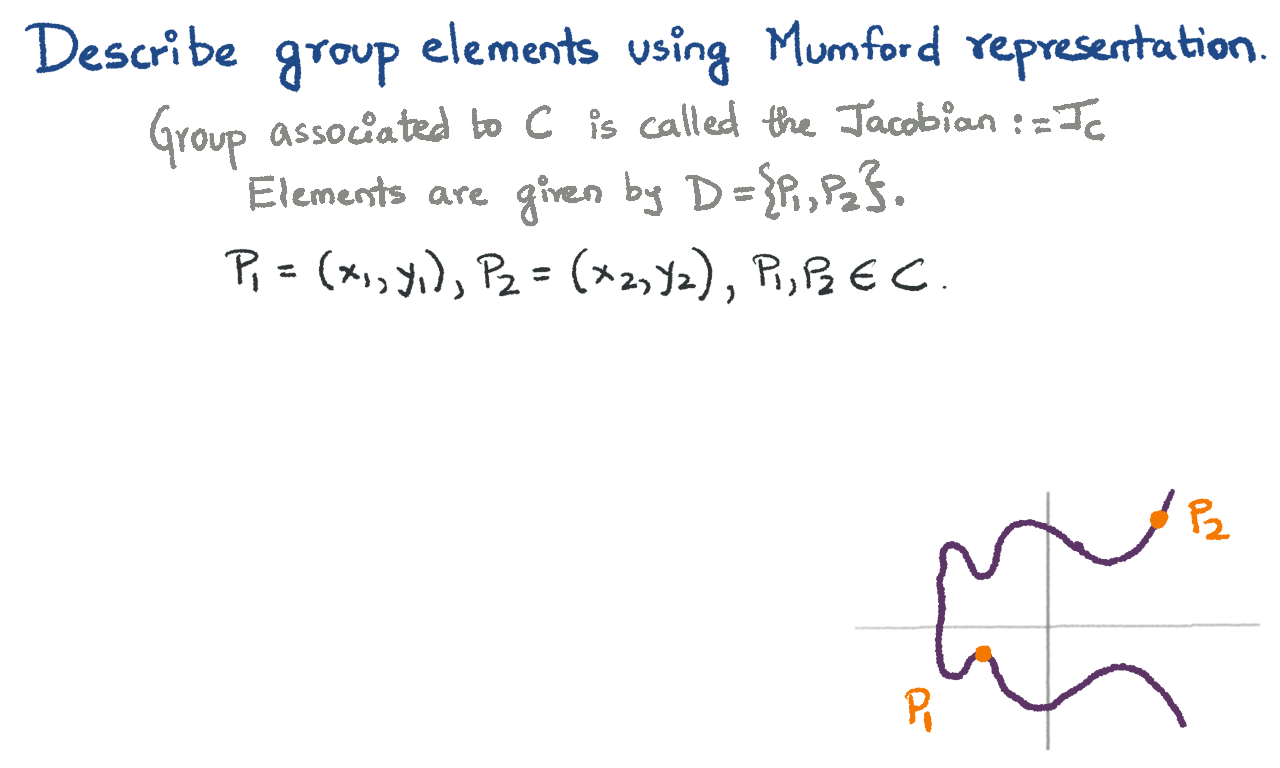 Describe group elements using Mumford representation.
Group associated to C is called the Jacobian := J_C
Elements are given by D = {P₁, P₂}.
P₁ = (x₁, y₁), P₂ = (x₂, y₂), P₁, P₂ ∈ C.
P₂
P₁